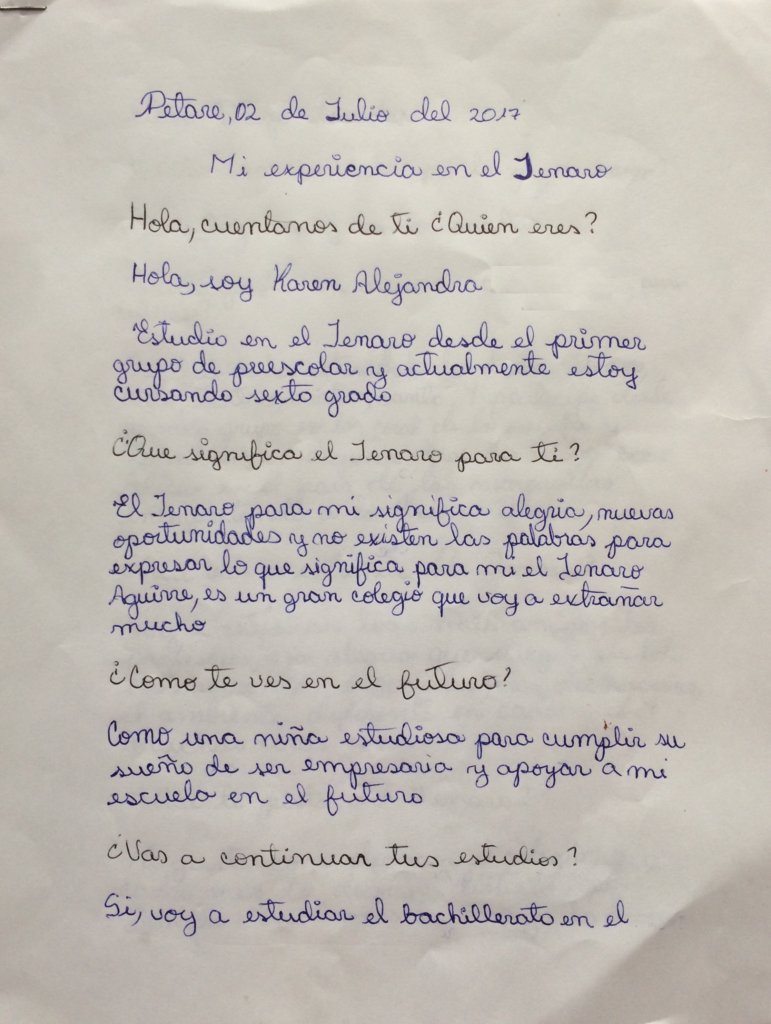 Petare, 02 de Julio del 2017
Mi experiencia en el Jenaro
Hola, cuentanos de ti ¿Quien eres?
Hola, soy Karen Alejandra
Estudio en el Jenaro desde el primer
grupo de preescolar y actualmente estoy
cursando sexto grado
¿Que significa el Jenaro para ti?
El Jenaro para mi significa alegria, nuevas
oportunidades y no existen las palabras para
expresar lo que significa para mi el Jenaro
Aguirre, es un gran colegio que voy a extrañar
mucho
¿Como te ves en el futuro?
Como una niña estudiosa para cumplir su
sueño de ser empresaria y apoyar a mi
escuela en el futuro
¿Vas a continuar tus estudios?
Si, voy a estudiar el bachillerato en el